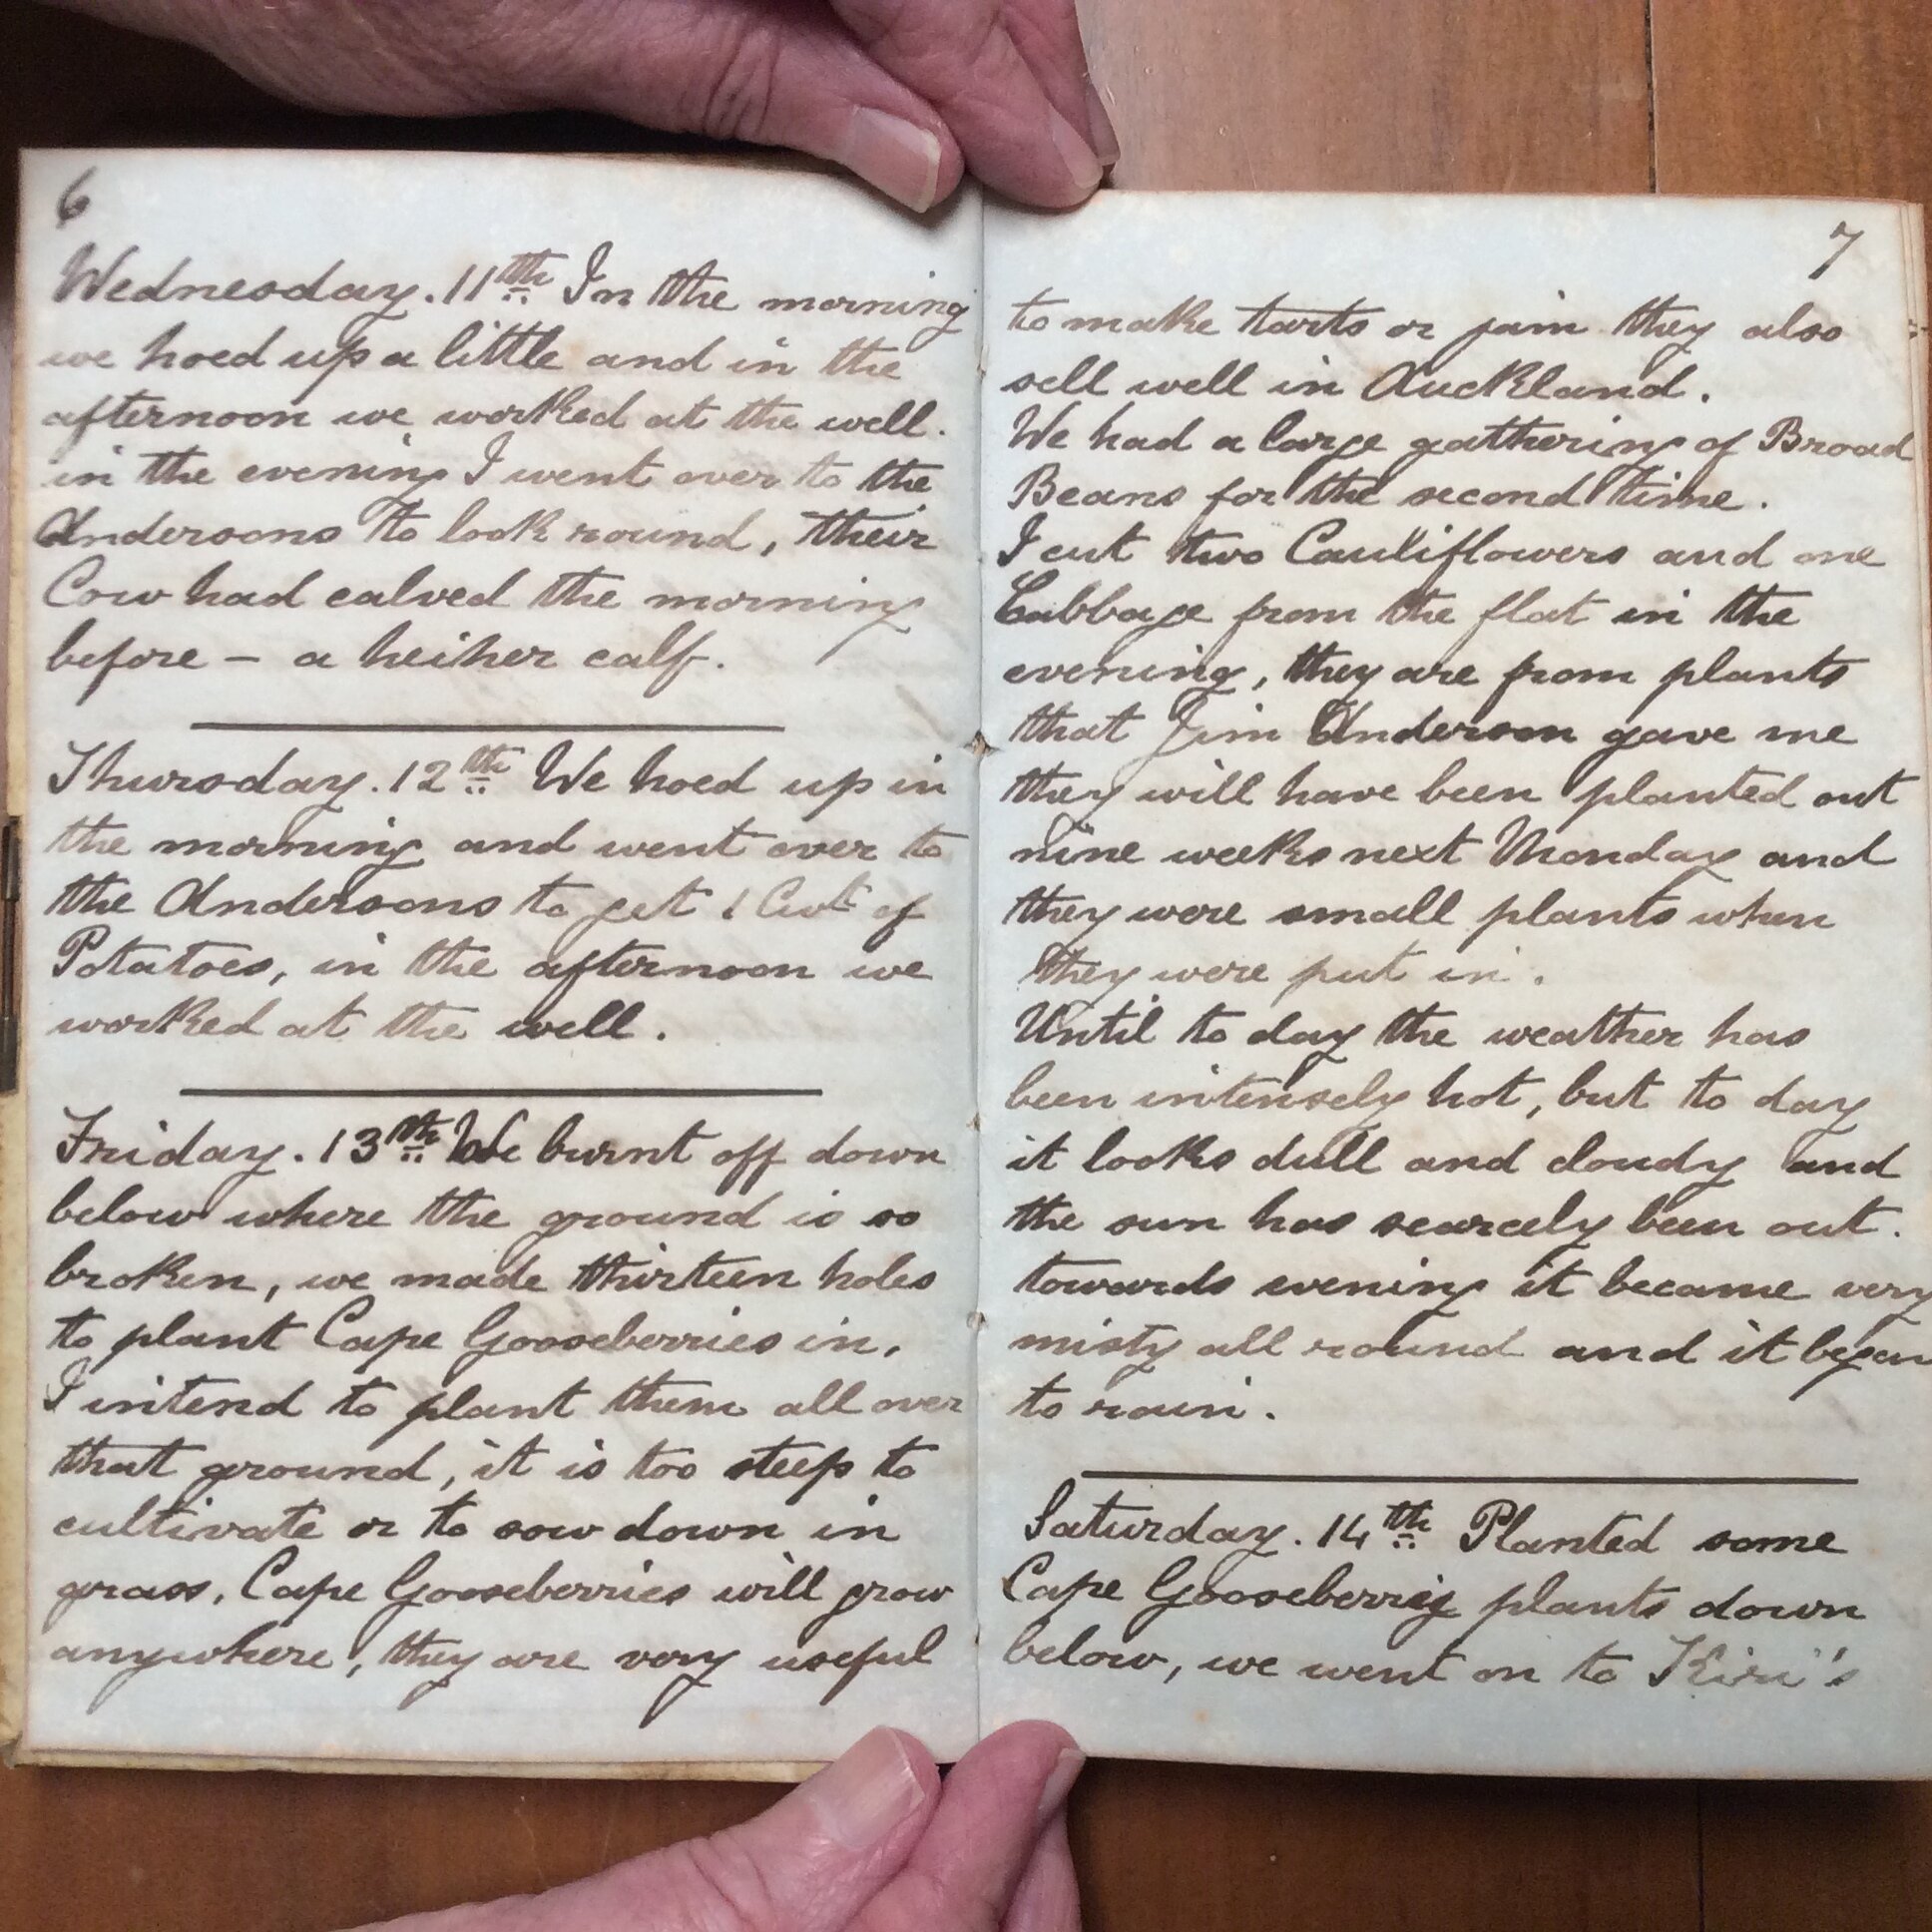 6
Wednesday. 11th In the morning
we hoed up a little and in the
afternoon we worked at the well.
in the evening I went over to the
Andersons to look round, their
Cow had calved the morning
before – a heiher calf.
Thursday. 12th We hoed up in
the morning and went over to
the Andersons to get 1 Cwt of
Potatoes, in the afternoon we
worked at the well.
Friday. 13th We burnt off down
below where the ground is so
broken, we made thirteen holes
to plant Cape Gooseberries in,
I intend to plant them all over
that ground, it is too steep to
cultivate or to sow down in
grass, Cape Gooseberries will grow
anywhere, they are very useful
7
to make tarts or jam they also
sell well in Auckland.
We had a large gathering of Broad
Beans for the second time.
I cut two Cauliflowers and one
Cabbage from the flat in the
evening, they are from plants
that Jim Anderson gave me
they will have been planted out
nine weeks next Monday and
they were small plants when
they were put in.
Until to day the weather has
been intensely hot, but to day
it looks dull and cloudy and
the sun has scarcely been out.
towards evening it became very
misty all round and it began
to rain.
Saturday. 14th Planted some
Cape Gooseberry plants down
below, we went on to Kiri's